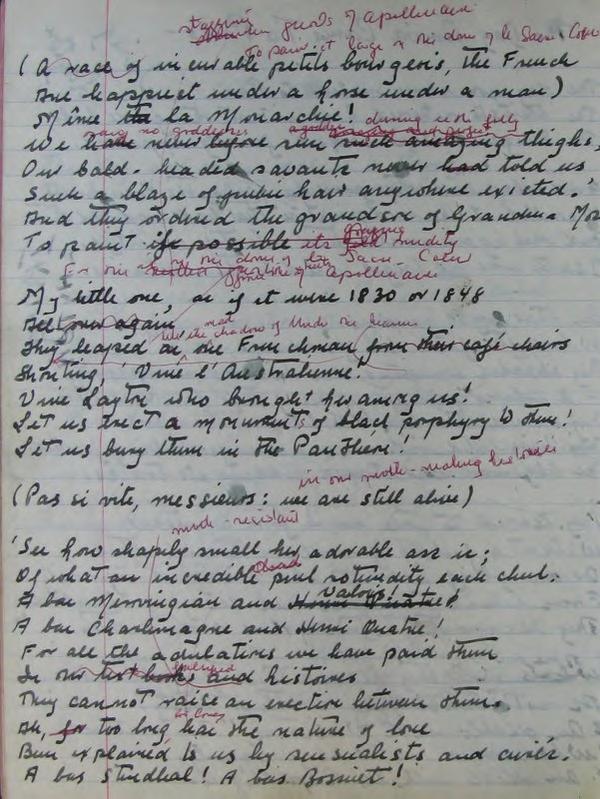 staggering goods of Apollinaire
To paint it large on the dome of le Sacré Coeur
(A race of incurable petits bourgeois, the French
Are happiest under a horse under a man)
Même la Monarchie!
We have never before seen such amazing thighs,
Our bald-headed savants never had told us
Such a blaze of pubic hair anywhere existed.'
And they ordered the grandson of Grandma Mo
To paint if possible its nudity
For the dome of Sacre-Coeur
of Apollinaire
My little one, as if it were 1830 or 1848
All over again,
They leaped as one Frenchman from their café chairs
Shouting, 'Vive l'Australienne!
Vive Layton who brought her among us!
Let us erect a monument of black porphyry to them!
Let us bury them in the Panthéon!'
in our myth-making histories
(Pas si vite, messieurs: we are still alive)
'See how shapely small her adorable ass is;
Of what an incredible pink rotundity each cheek.
A bas Merovingian and Valois!
A bas Charlemagne and Henri Quatre!
For all the adulations we have paid them
In our text books and histoires
They cannot raise an erection between them.
Ah, for too long has the nature of love
Been explained to us by sensualists and curés.
A bas Stendhal! A bas Bossuet!